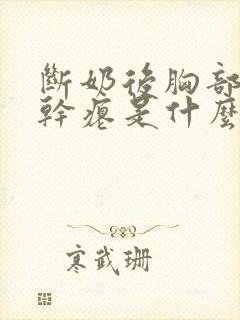 斷奶後胸部
幹癟是什麼
寒武珊